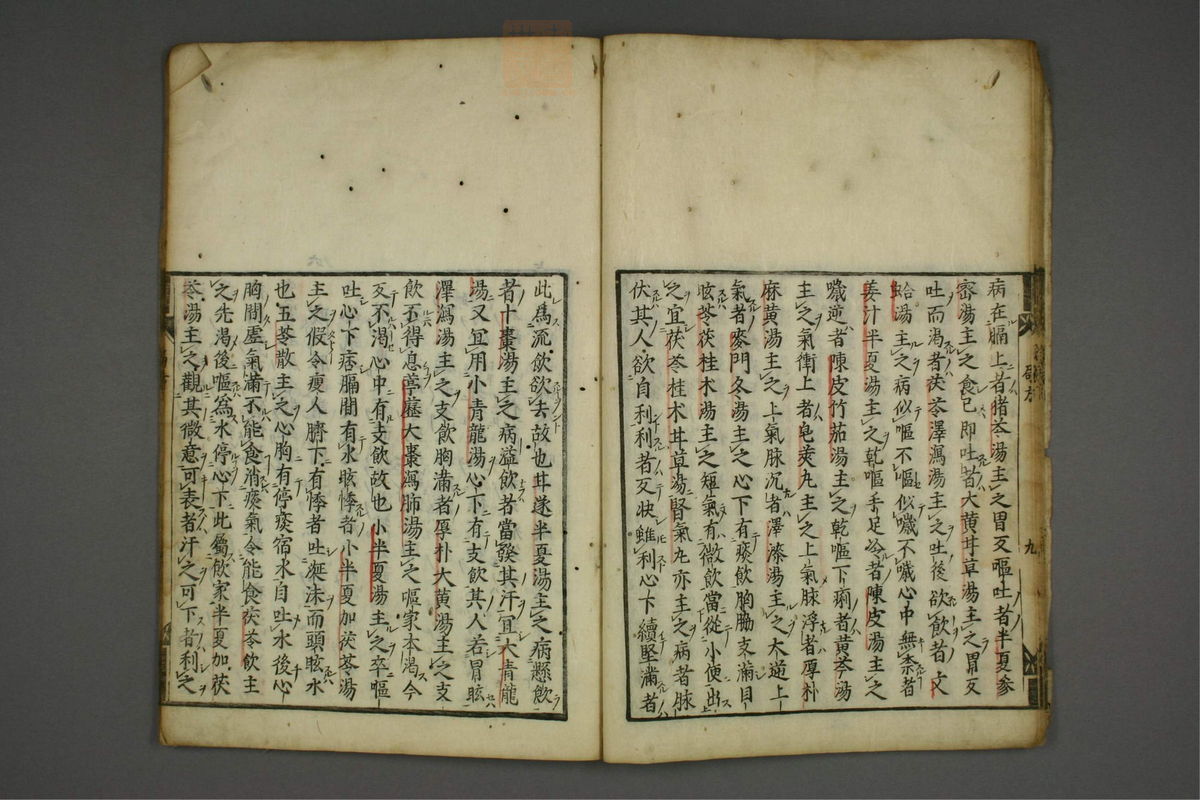 病在膈上者猪苓湯主之胃反嘔吐者半夏參
蜜湯主之食已即吐者大黄甘草湯主之胃反
吐而渴者茯苓澤瀉湯主之吐後欲飲者文
蛤湯主之病似嘔不嘔似噦不噦心中無柰者
姜汁半夏湯主之乾嘔手足冷者陳皮湯主之
噦逆者陳皮竹茹湯主之乾嘔下痢者黄芩湯
主之氣衝上者皂莢丸主之上氣脉浮者厚朴
麻黄湯主之上氣脉沉者澤漆湯主之大逆上
氣者麥門冬湯主之心下有痰飲胸脇支滿目
眩苓茯桂木湯主之短氣有微飲當從小便出
之宜茯苓桂木甘草湯腎氣丸亦主之病者脉
伏其人欲自利利者反快雖利心下續堅滿者
九
此爲流飲欲去故也甘遂半夏湯主之病懸飲
者十棗湯主之病溢飲者當發其汗宜大青龍
湯又宜用小青龍湯心下有支飲其人若冒眩
澤瀉湯主之支飲胸滿者厚朴大黄湯主之支
飲不得息葶藶大棗瀉肺湯主之嘔家本渴今
反不渴心中有支飲故也小半夏湯主之卒嘔
吐心下痞膈間有水眩悸者小半夏加茯苓湯
主之假令瘦人臍下有悸者吐涎沫而頭眩水
也五苓散主之心胸有停痰宿水自吐水後心
胸間虚氣滿不能食消痰氣令能食茯苓飲主
之先渴後嘔爲水停心下此屬飲家半夏加茯
苓湯主之觀其微意可表者汗之可下者利之